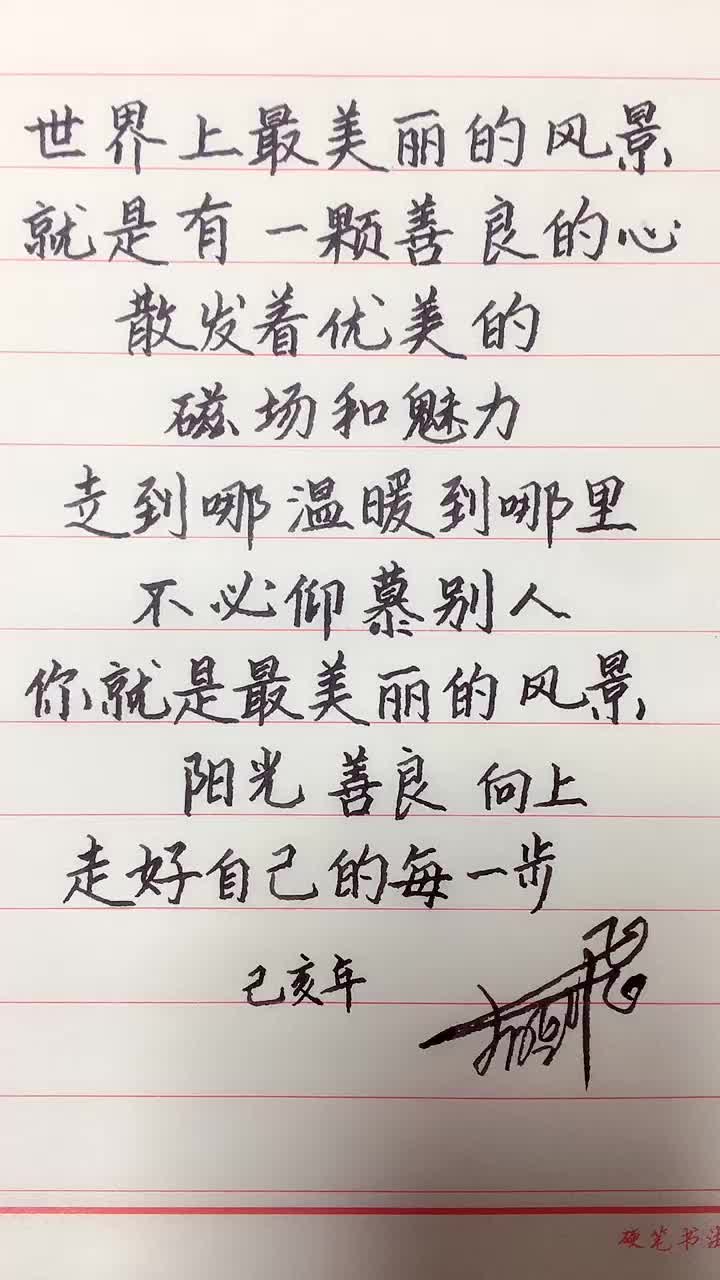 世界上最美丽的风景
就是有一颗善良的心
散发着优美的
磁场和魅力
走到哪温暖到哪里
不必仰慕别人
你就是最美丽的风景
阳光 善良 向上
走好自己的每一步
己亥年
硬笔书法